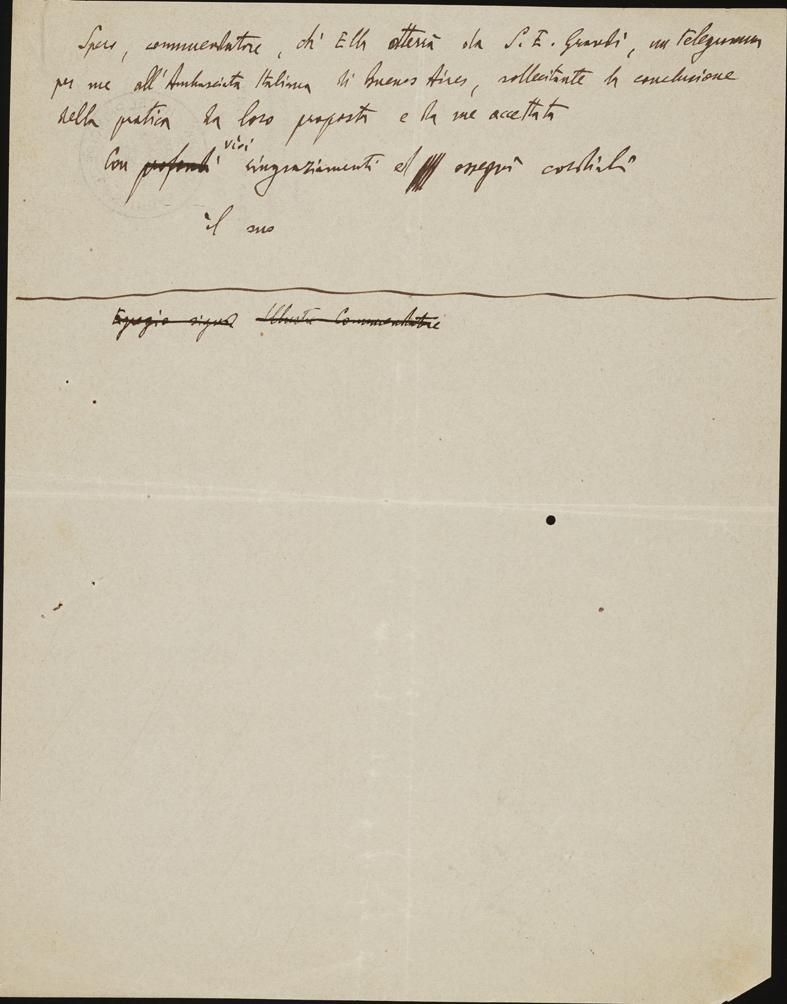 Spero, commendatore, ch' Ella otterrà da S. E. Grandi, un telegramma
per me all'Ambasciata Italiana di Buenos Aires, sollecitante la conclusione
della pratica da loro proposta e da me accettata
Con profondi vivi ringraziamenti ed ossequi cordiali
il suo
Egregio signor Illustre Commendatore